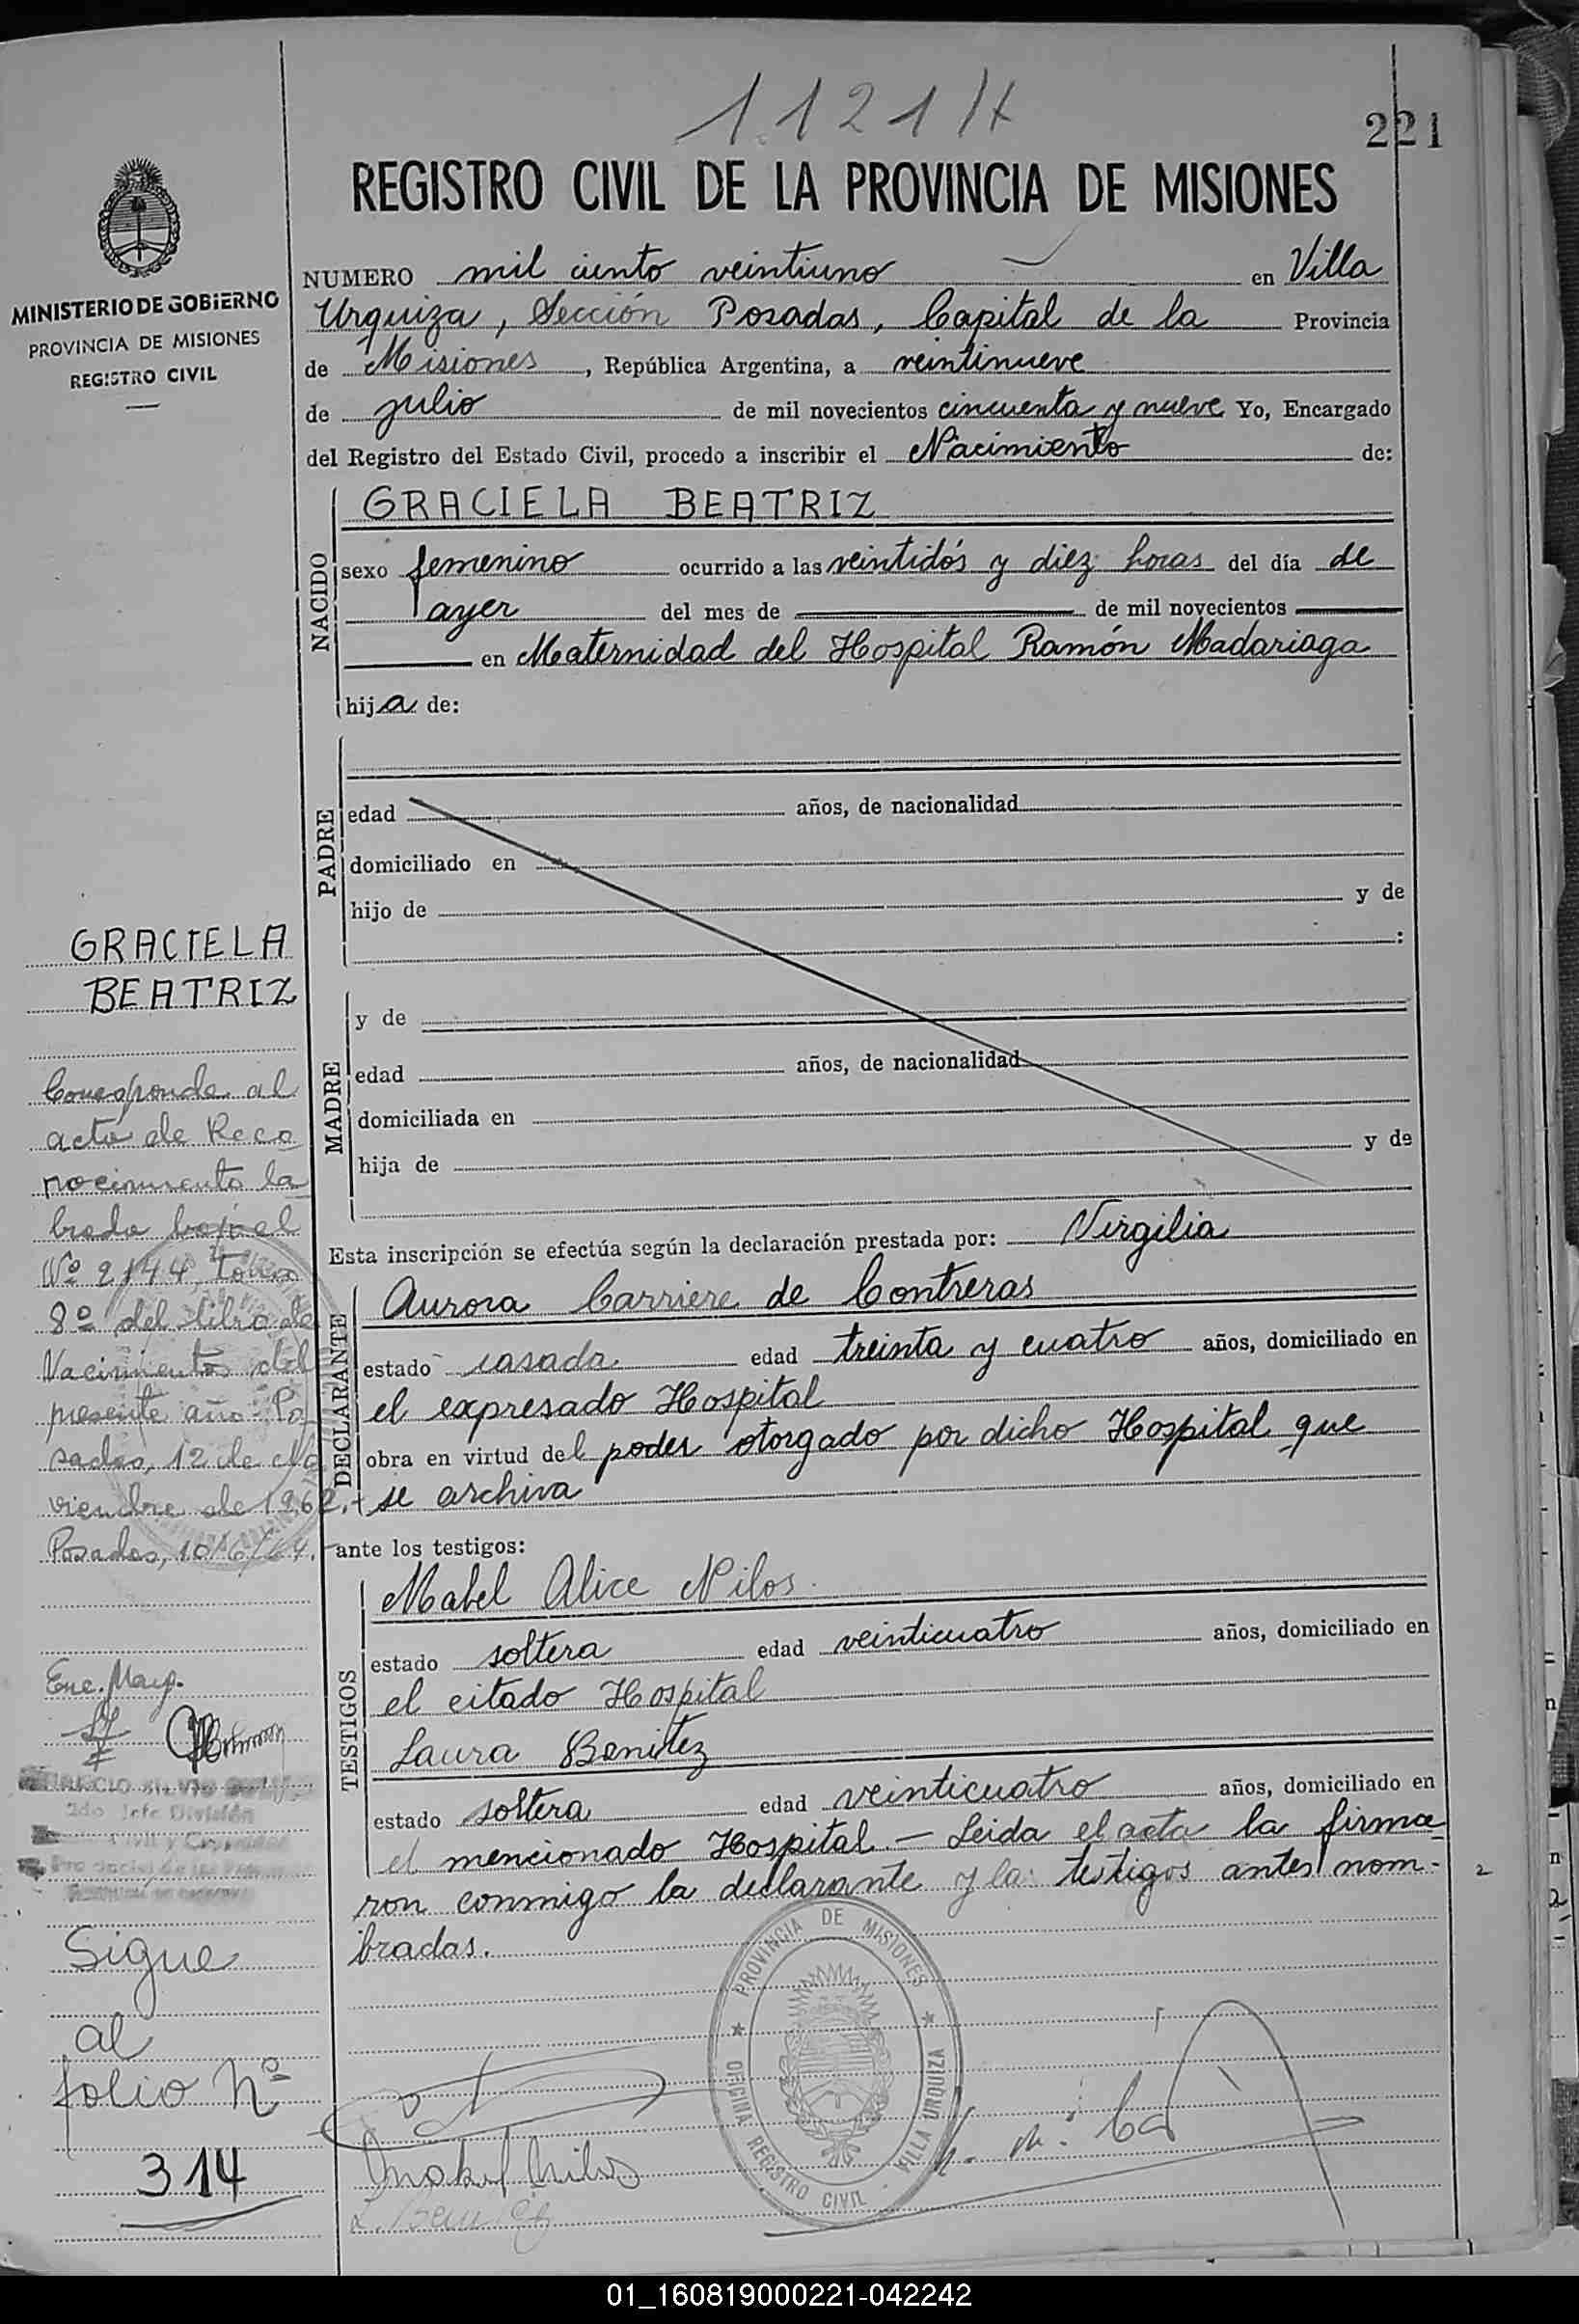 1121/H
221
MINISTERIO DE GOBIERNO
PROVINCIA DE MISIONES
REGISTRO CIVIL
REGISTRO CIVIL DE LA PROVINCIA DE MISIONES
NUMERO mil ciento veintiuno en Villa
Urquiza, Sección Posadas, Capital de la Provincia
de Misiones, República Argentina, a veintinueve
de julio de mil novecientos cincuenta y nueve Yo, Encargado
del Registro del Estado Civil, procedo a inscribir el Nacimiento de:
NACIDO
GRACIELA BEATRIZ
sexo femenino ocurrido a las veintidós y diez horas del día de
ayer del mes de de mil novecientos
en Maternidad del Hospital Ramón Madariaga
hija de:
PADRE
edad años, de nacionalidad
domiciliado en
hijo de y de
:
MADRE
y de
edad años, de nacionalidad
domiciliada en
hija de y de
Esta inscripción se efectúa según la declaración prestada por: Virgilia
DECLARANTE
Aurora Carriere de Contreras
estado casada edad treinta y cuatro años, domiciliado en
el expresado Hospital
obra en virtud del poder otorgado por dicho Hospital que
se archiva
ante los testigos:
TESTIGOS
Mabel Alice Nilos
estado soltera edad veinticuatro años, domiciliado en
el citado Hospital
Laura Benitez
estado soltera edad veinticuatro años, domiciliado en
el mencionado Hospital - Leida el acta la firma
ron conmigo la declarante y la testigos antes nom-
bradas.
GRACIELA
BEATRIZ
Corresponde al
acta de Reco
nocimiento la
brada bajo el
Nº 2144, tomo
8º del libro de
Nacimientos del
presente año. Po
sadas, 12 de No
viembre de 1962.-
Posadas, 10/6/64.-
Enc. Mayo.
2do Jefe División
Sigue
al
folio Nº
314
PROVINCIA DE MISIONES
OFICINA REGISTRO CIVIL
VILLA URQUIZA
Mabel Nilos
L. Benitez
01_160819000221-042242